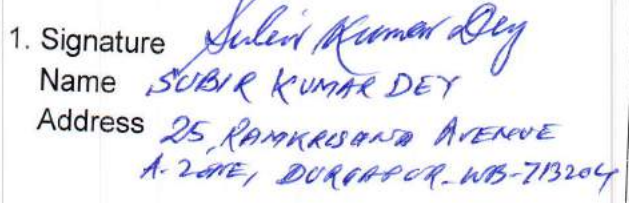 1. Signature Subir Kumar Dey
Name SUBIR KUMAR DEY
Address 25, RAMKRISHNA AVENUE
A-ZONE, DURGAPUR-WB-713204